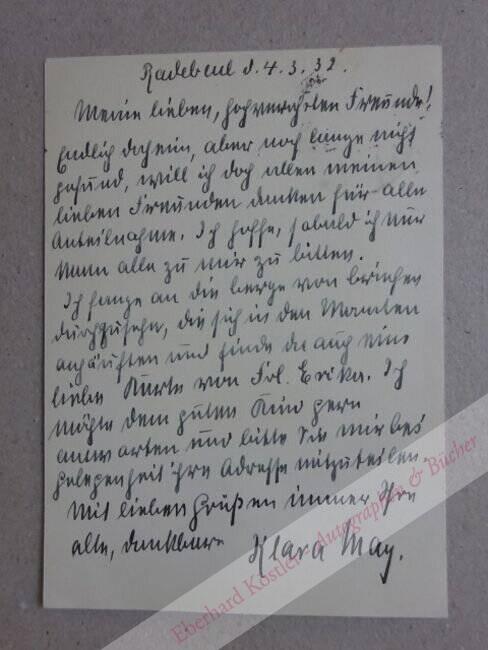 Radebeul d. 4.3.32.
Meine lieben, hochverehrten Freunde!
Endlich daheim, aber noch lange nicht
gesund, will ich doch allen meinen
lieben Freunden danken für alle
Anteilnahme. Ich hoffe, sobald ich nur
kann alle zu mir zu bitten.
Ich fange an die Berge von Briefen
durchzusehn, die sich in den Monaten
anhäuften und finde da auch eine
liebe Karte von Frl. Erika. Ich
möchte dem guten Kind gern
antworten und bitte Sie mir bei
Gelegenheit ihre Adresse mitzuteilen.
Mit lieben Grüßen immer Ihre
alte, dankbare Klara May.
Eberhard Köstler - Autographen & Bücher